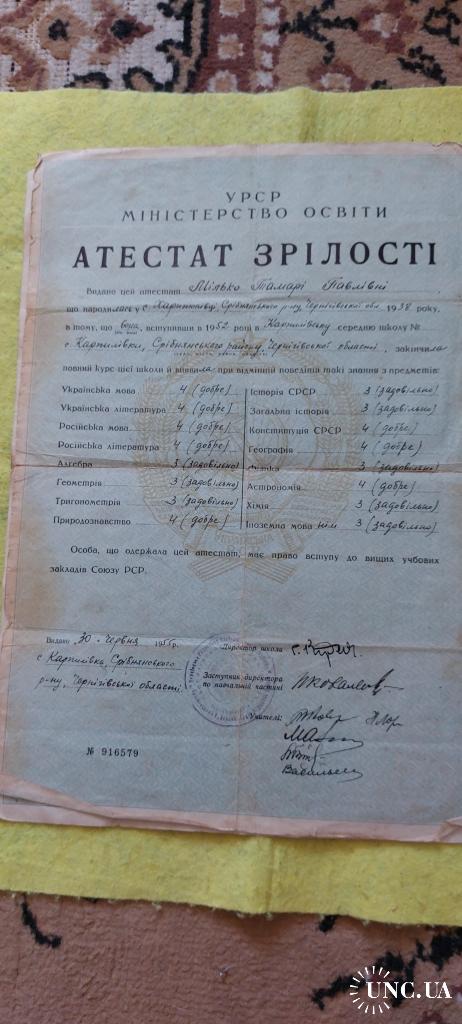 УРСР
МІНІСТЕРСТВО ОСВІТИ
АТЕСТАТ ЗРІЛОСТІ
Видано цей атестат Мілько Тамарі Павлівні
що народилась у с. Срібнянського р-ну, Чернігівської обл. 1938 року,
в тому, що вона, вступивши в 1952 році в Карпилівську середню школу №
с. Карпилівки, Срібнянського району, Чернігівської області, закінчила
повний курс цієї школи й виявила при відмінній поведінці такі знання з предметів:
Українська мова 4 (добре)
Українська література 4 (добре)
Російська мова 4 (добре)
Російська література 4 (добре)
Алгебра 3 (задовільно)
Геометрія 3 (задовільно)
Тригонометрія 3 (задовільно)
Природознавство 4 (добре)
Історія СРСР 3 (задовільно)
Загальна історія 3 (задовільно)
Конституція СРСР 4 (добре)
Географія 4 (добре)
Фізика 3 (задовільно)
Астрономія 4 (добре)
Хімія 3 (задовільно)
Іноземна мова нім 3 (задовільно)
Особа, що одержала цей атестат, має право вступу до вищих учбових
закладів Союзу РСР.
Видано 30 червня 1955 р.
с Карпилівка, Срібнянського
р-ну, Чернігівської області
Директор школи
Заступник директора
по навчальній частині
Учителі:
№ 916579
UNC.UA